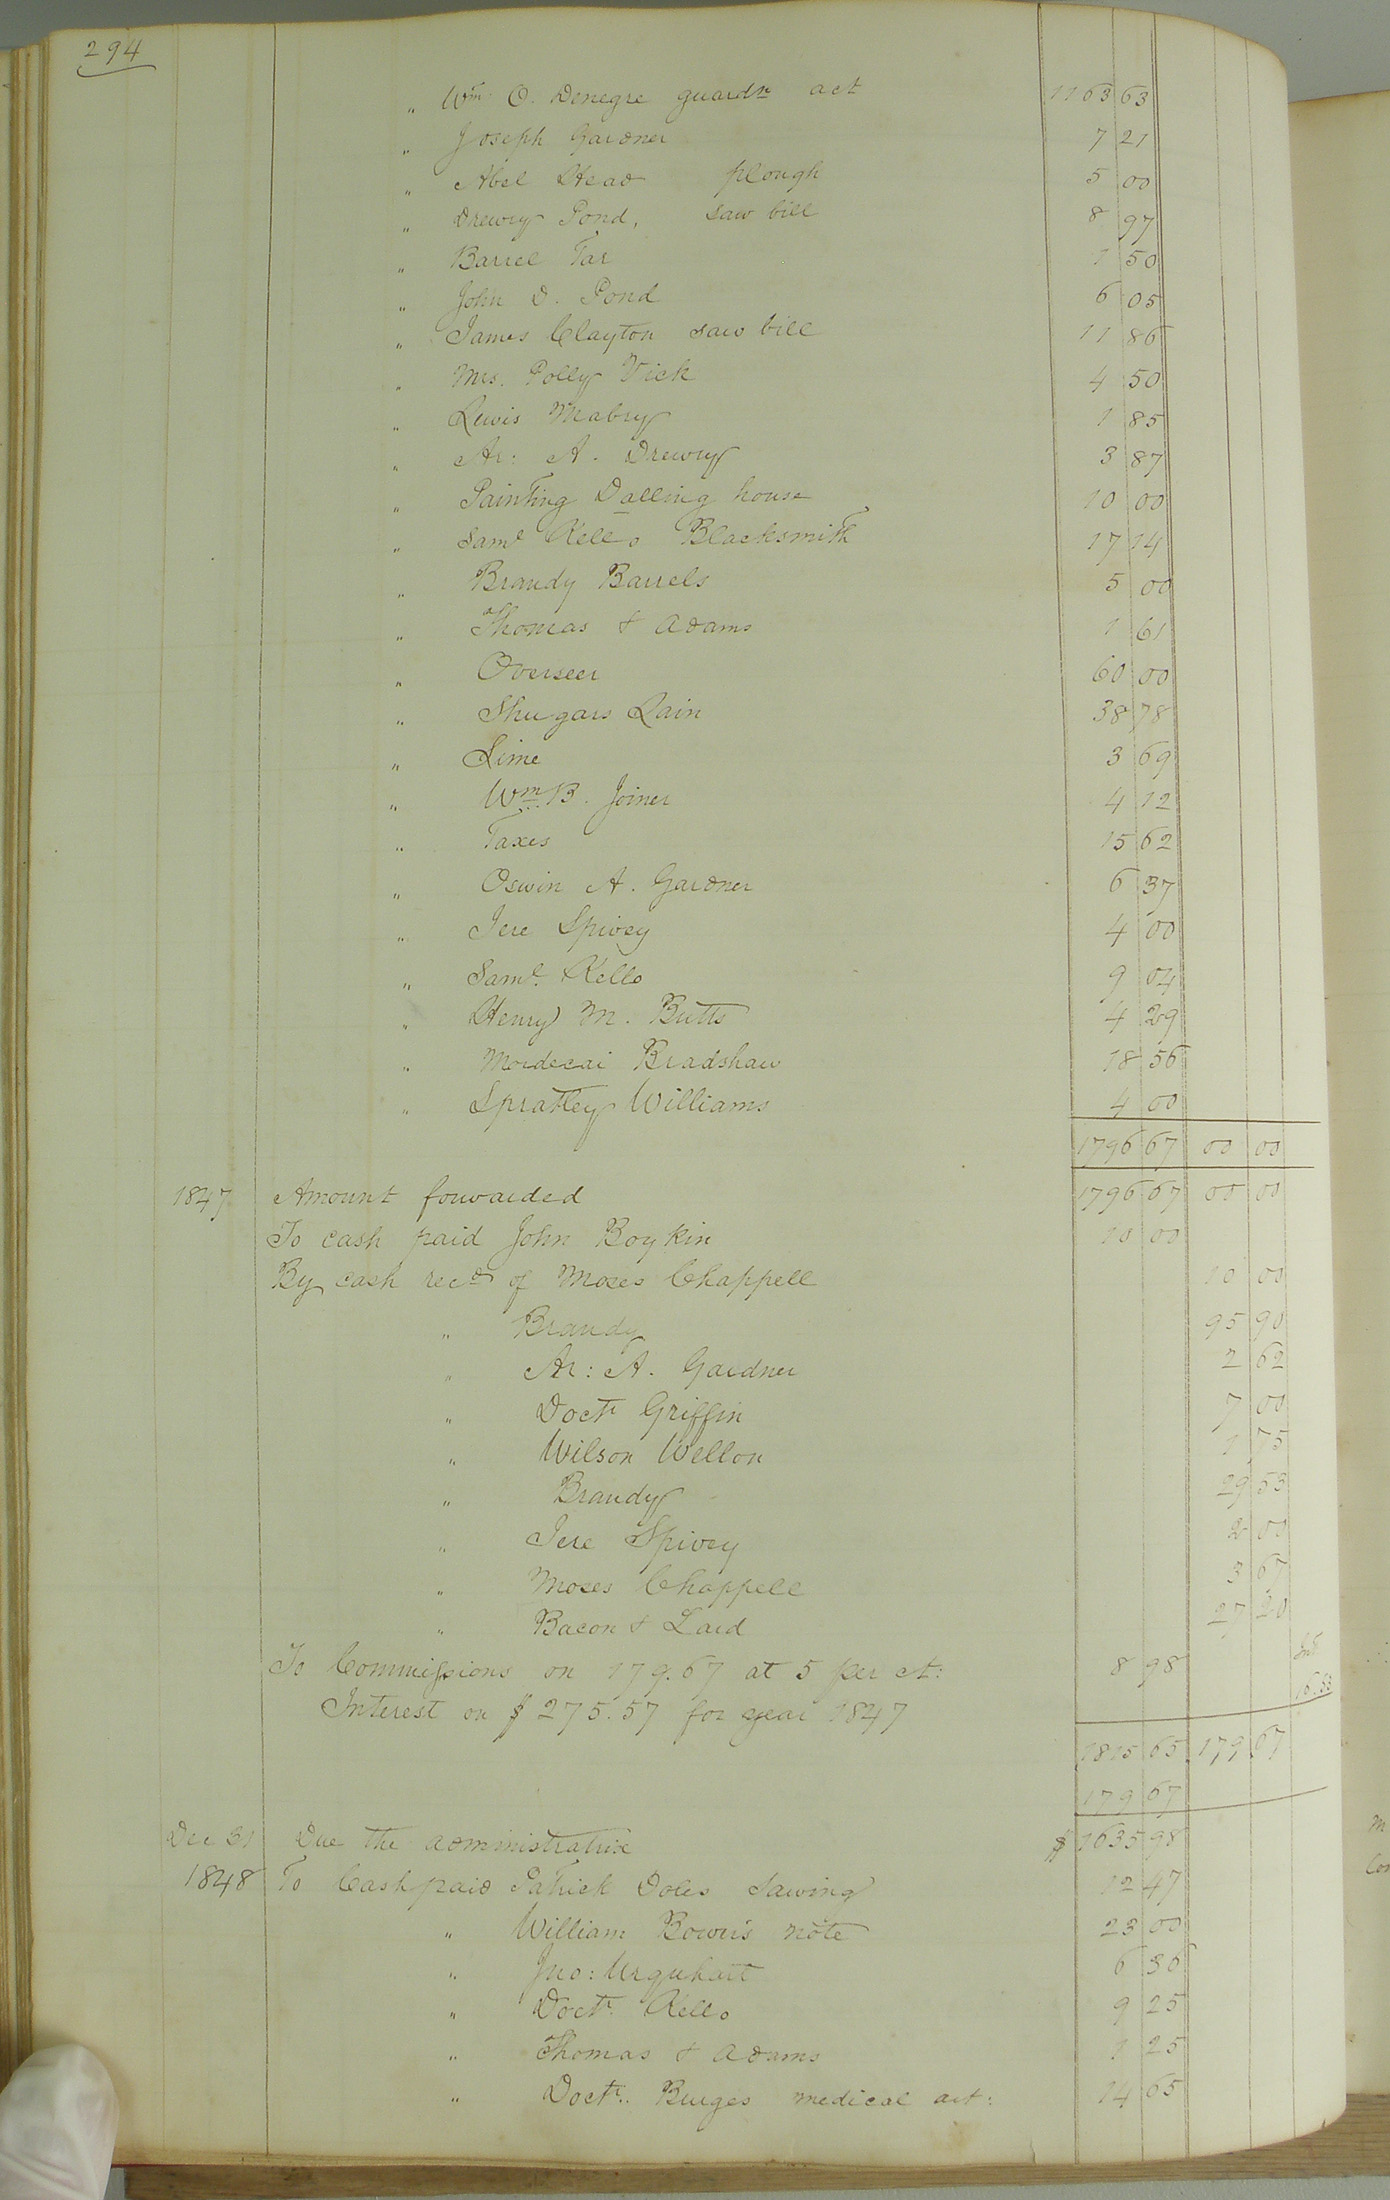 294
" Wm O. Denegre guardn act 1163 63
" Joseph Gardner 7 21
" Abel Head plough 5 00
" Drewry Pond, saw bill 8 97
" Barrel Tar 1 50
" John D. Pond 6 05
" James Clayton saw bill 11 86
" Mrs. Polly Vick 4 50
" Lewis Mabry 1 85
" Ar: A. Drewry 3 87
" Painting Dalling house 10 00
" Saml Kello Blacksmith 17 14
" Brandy Barrels 5 00
" Thomas & Adams 1 61
" Overseer 60 00
" Shugars Lain 38 78
" Lime 3 69
" Wm B. Joiner 4 12
" Taxes 15 62
" Oswin A. Gardner 6 37
" Jere Spivey 4 00
" Saml. Kello 9 04
" Henry M. Butts 4 29
" Mordecai Bradshaw 18 56
" Spratley Williams 4 00
1796 67 00 00
1847 Amount forwarded 1796 67 00 00
To cash paid John Boykin 10 00
By cash recd of Moses Chappell 10 00
" Brandy 95 90
" Ar: A. Gardner 2 62
" Doctr Griffin 7 00
" Wilson Wellon 1 75
" Brandy 29 53
" Jere Spivey 2 00
" Moses Chappell 3 67
" Bacon & Lard 27 20
To Commissions on 179.67 at 5 per ct: 8 98 Int
Interest on $275.57 for year 1847 16.53
1815 65 179 67
179 67
Dec 31 Due the administratrix $ 1635 98
1848 To Cash paid Patrick Doles Sawing 12 47
" William Bower's note 23 00
" Jno: Urquhart 6 30
" Doctr. Kello 9 25
" Thomas & Adams 1 25
" Doctr.. Burges medical act: 14 65